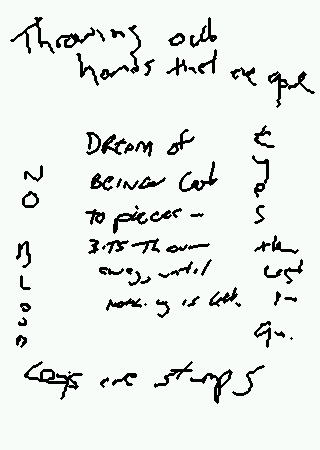 Throwing out
hands that are
DREAM OF
BEING Cut
TO pieces -
BITS Thrown
away, until
nothing is left.
NO
BLOOD
Eyes
the
last
to
go.
Legs are stumps